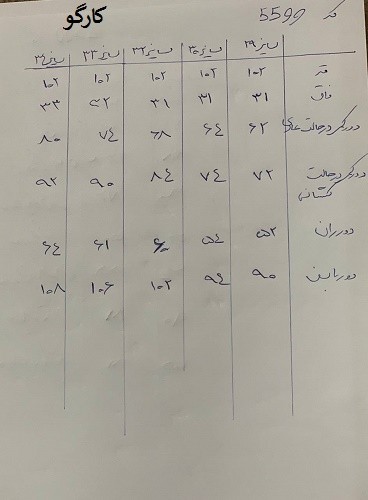 کد 5599 کارگو
سایز ۲۹ سایز ۳۰ سایز ۳۲ سایز ۳۳ سایز ۳۴
قد ۱۰۲ ۱۰۲ ۱۰۲ ۱۰۲ ۱۰۲
فاق ۳۱ ۳۱ ۳۱ ۳۲ ۳۳
دورکمر در حالت عادی ۶۲ ۶۴ ۶۸ ۷۴ ۸۰
دورکمر در حالت ۷۲ ۷۴ ۸۴ ۹۰ ۹۲
کشسانی
دورران ۵۲ ۵۴ ۶۰ ۶۱ ۶۴
دورباسن ۹۰ ۹۴ ۱۰۲ ۱۰۶ ۱۰۸